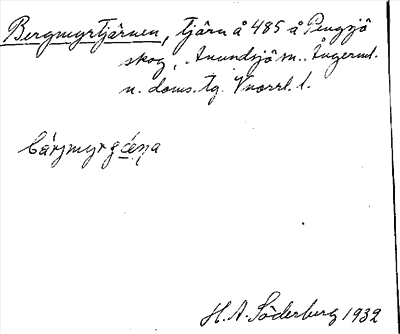 Bergmyrtjärnen, tjärn å 485 å Pengsjö
skog, Anundsjö sn. Ångerml.
n. doms. tg. Vnorrl. l.
bárjmyrgćėṇa
H. A. Söderberg 1932